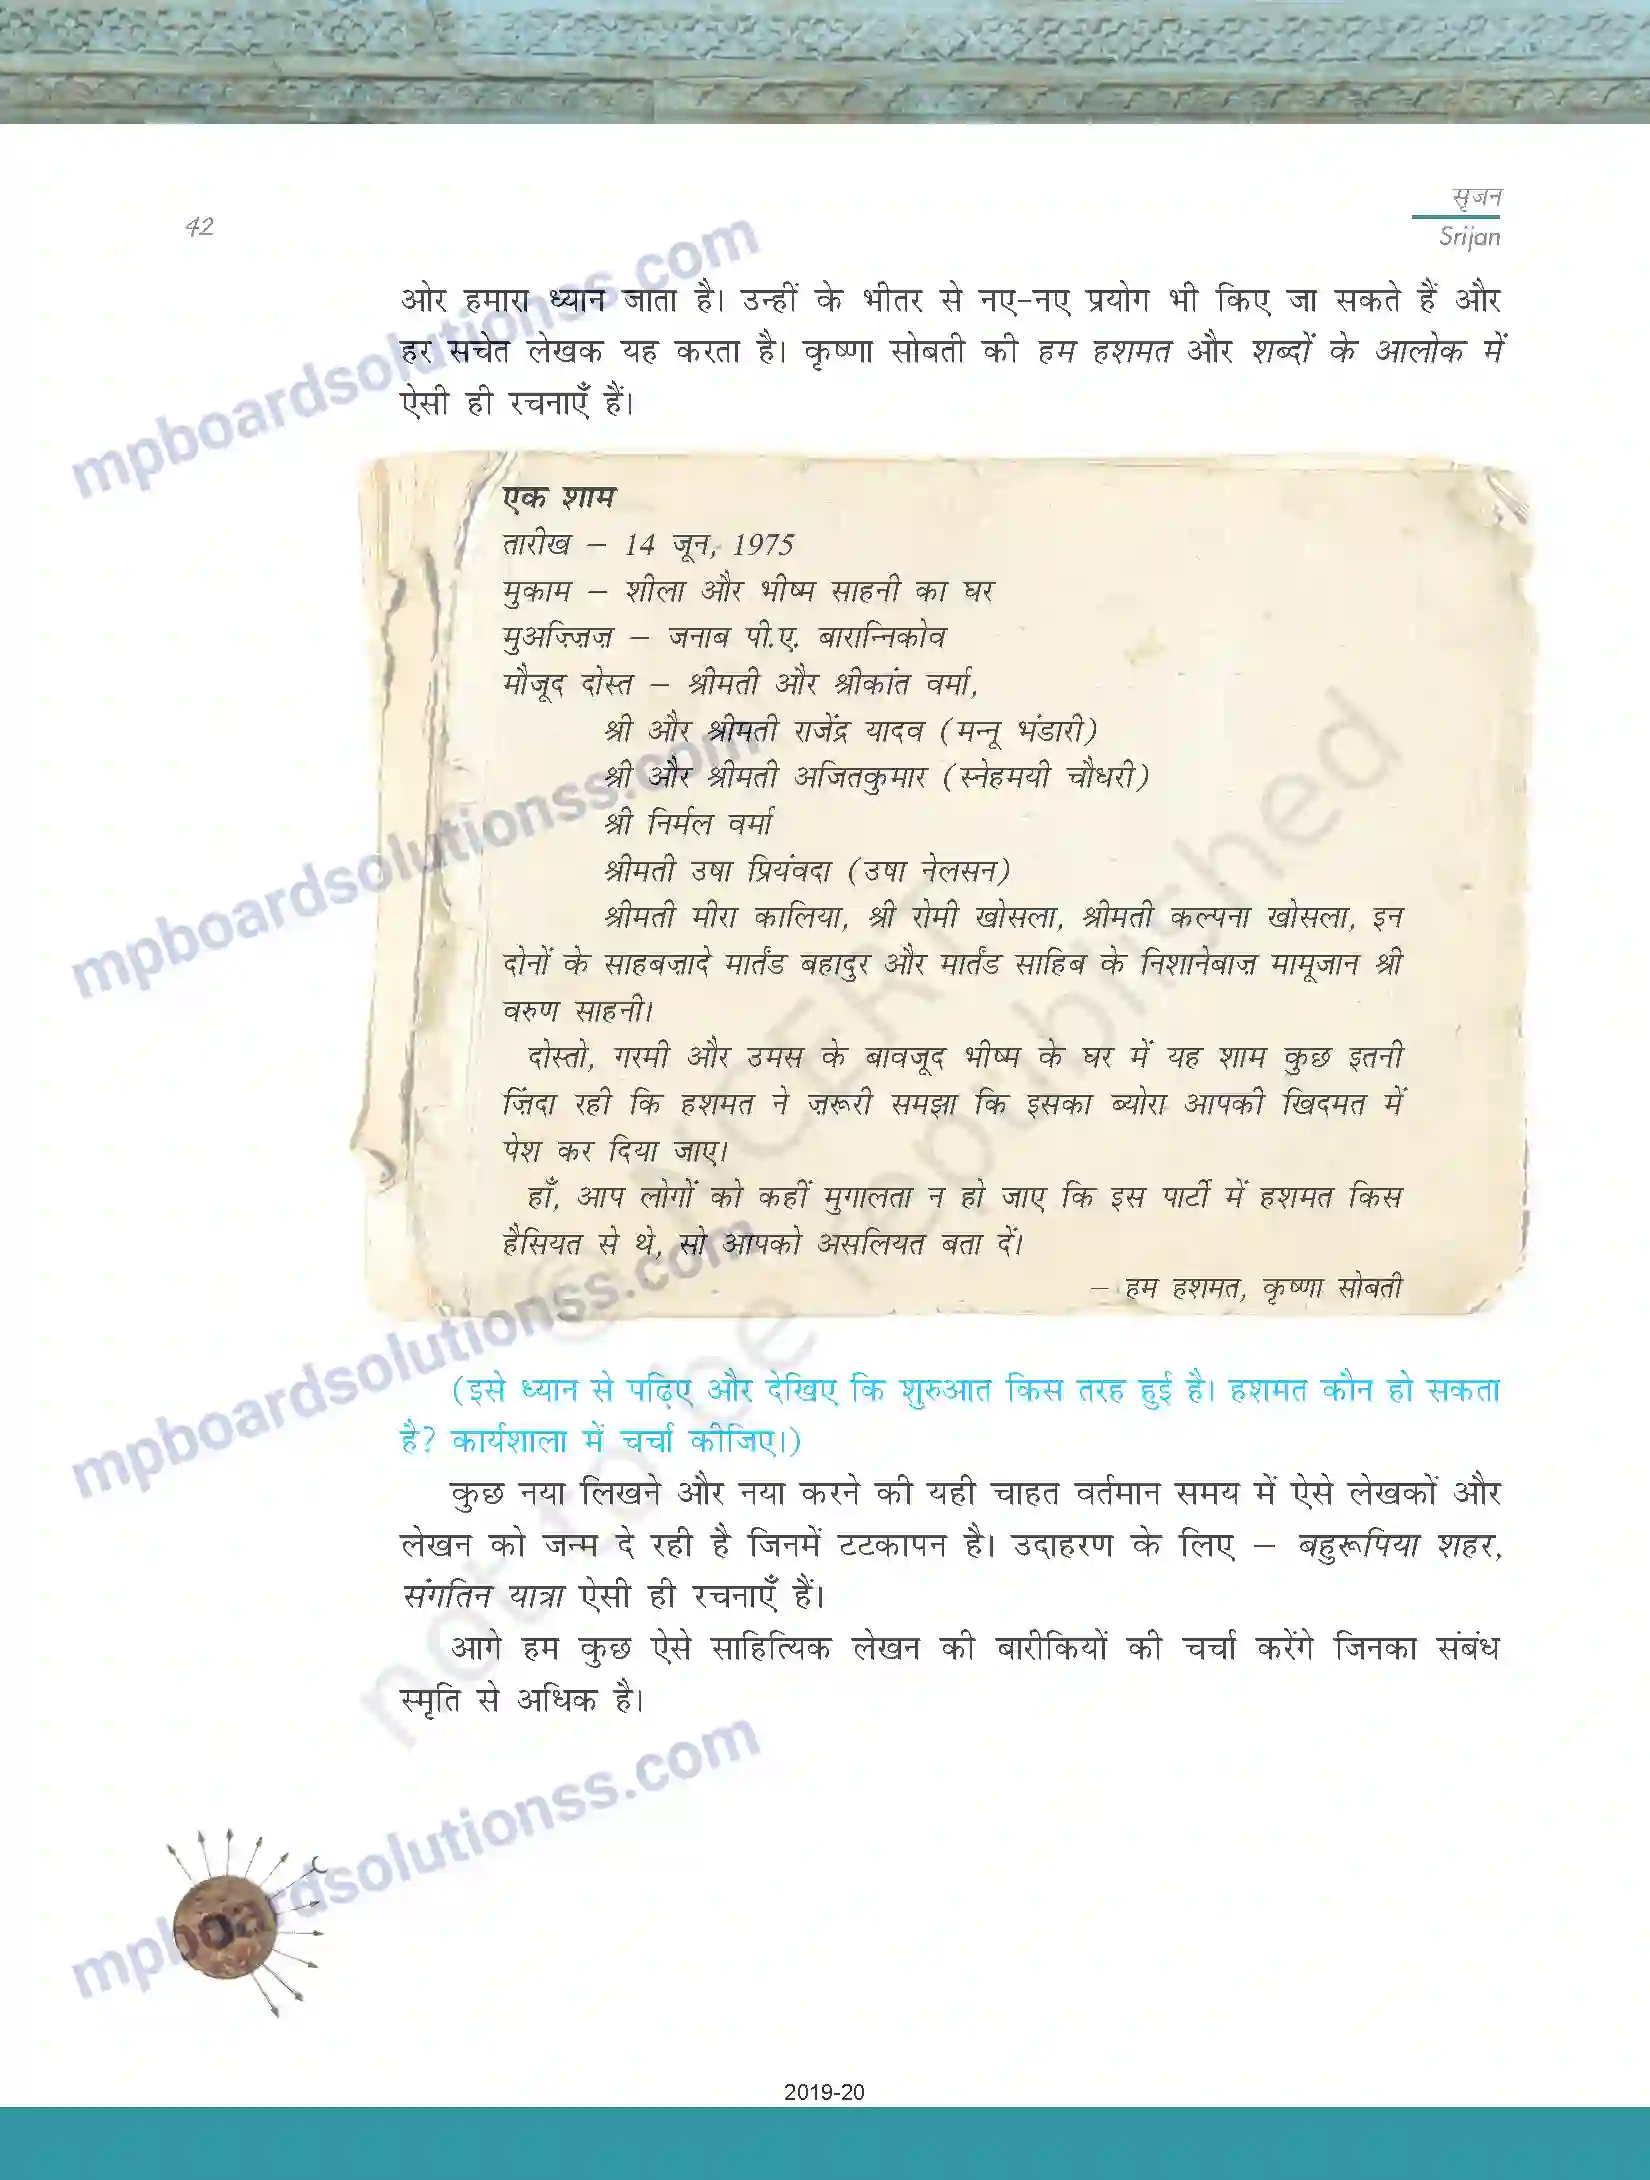 42
सृजन
Srijan
ओर हमारा ध्यान जाता है। उन्हीं के भीतर से नए-नए प्रयोग भी किए जा सकते हैं और
हर सचेत लेखक यह करता है। कृष्णा सोबती की हम हशमत और शब्दों के आलोक में
ऐसी ही रचनाएँ हैं।
एक शाम
तारीख – 14 जून, 1975
मुकाम – शीला और भीष्म साहनी का घर
मुअज़्ज़िज़ – जनाब पी.ए. बारान्निकोव
मौजूद दोस्त – श्रीमती और श्रीकांत वर्मा,
श्री और श्रीमती राजेंद्र यादव (मन्नू भंडारी)
श्री और श्रीमती अजितकुमार (स्नेहमयी चौधरी)
श्री निर्मल वर्मा
श्रीमती उषा प्रियंवदा (उषा नेलसन)
श्रीमती मीरा कालिया, श्री रोमी खोसला, श्रीमती कल्पना खोसला, इन
दोनों के साहबज़ादे मार्तंड बहादुर और मार्तंड साहिब के निशानेबाज़ मामूजान श्री
वरुण साहनी।
दोस्तो, गरमी और उमस के बावजूद भीष्म के घर में यह शाम कुछ इतनी
ज़िंदा रही कि हशमत ने ज़रूरी समझा कि इसका ब्योरा आपकी खिदमत में
पेश कर दिया जाए।
हाँ, आप लोगों को कहीं मुगालता न हो जाए कि इस पार्टी में हशमत किस
हैसियत से थे, सो आपको असलियत बता दें।
– हम हशमत, कृष्णा सोबती
(इसे ध्यान से पढ़िए और देखिए कि शुरुआत किस तरह हुई है। हशमत कौन हो सकता
है? कार्यशाला में चर्चा कीजिए।)
कुछ नया लिखने और नया करने की यही चाहत वर्तमान समय में ऐसे लेखकों और
लेखन को जन्म दे रही है जिनमें टटकापन है। उदाहरण के लिए – बहुरूपिया शहर,
संगतिन यात्रा ऐसी ही रचनाएँ हैं।
आगे हम कुछ ऐसे साहित्यिक लेखन की बारीकियों की चर्चा करेंगे जिनका संबंध
स्मृति से अधिक है।
2019-20
mpboardsolutionss.com
mpboardsolutionss.com
mpboardsolutionss.com
mpboardsolutionss.com
© NCERT
not to be republished